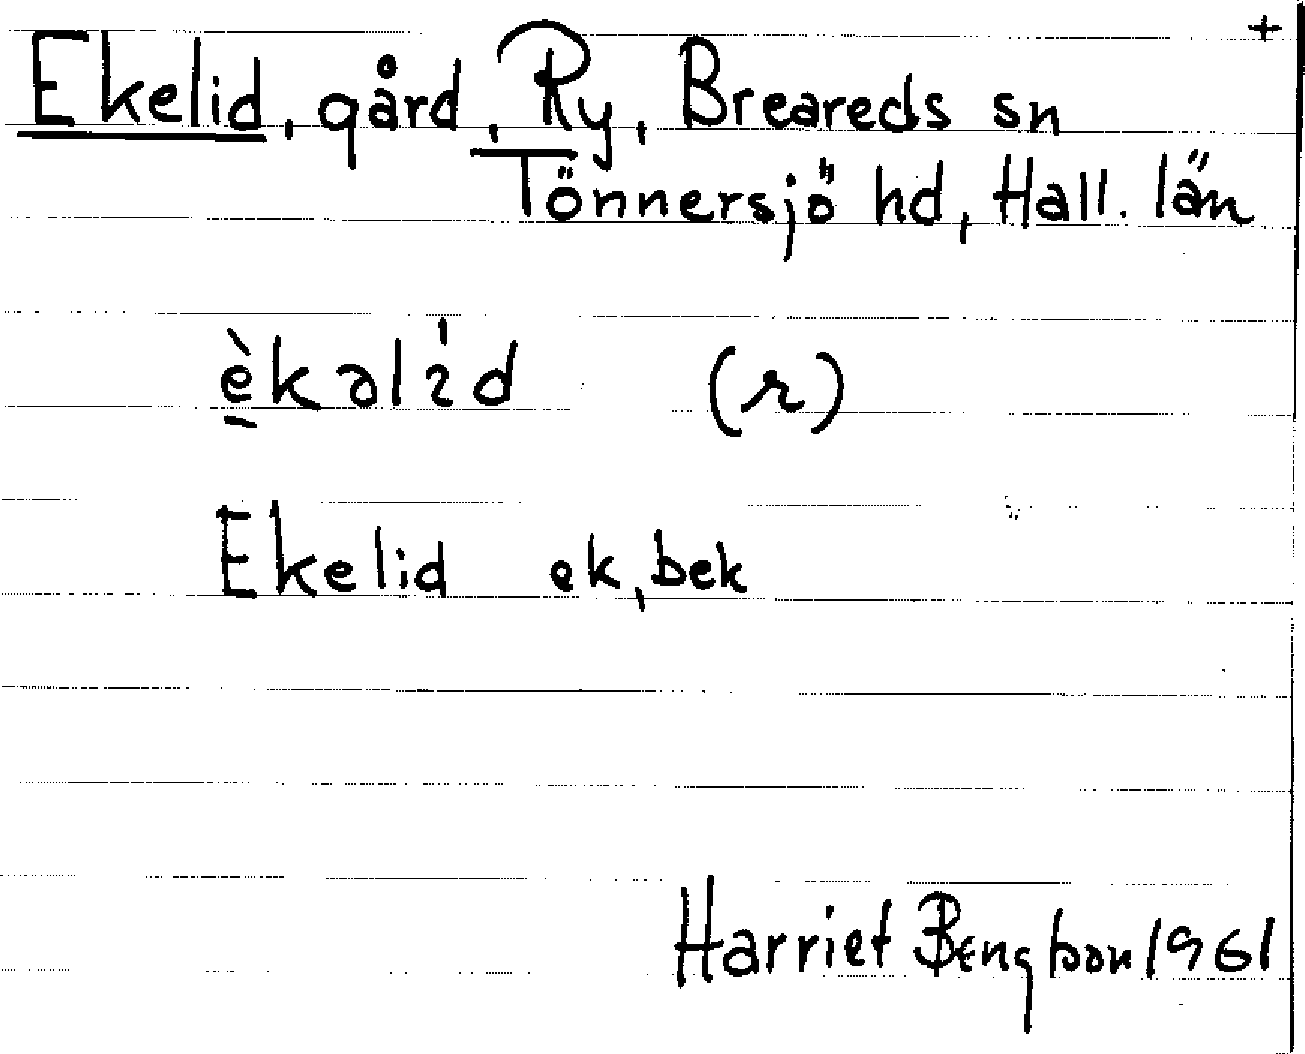 +
Ekelid, gård, Ry, Breareds sn
Tönnersjö hd, Hall. län
è̱kəlíd (r)
Ekelid ek, bek
Harriet Bengtson 1961